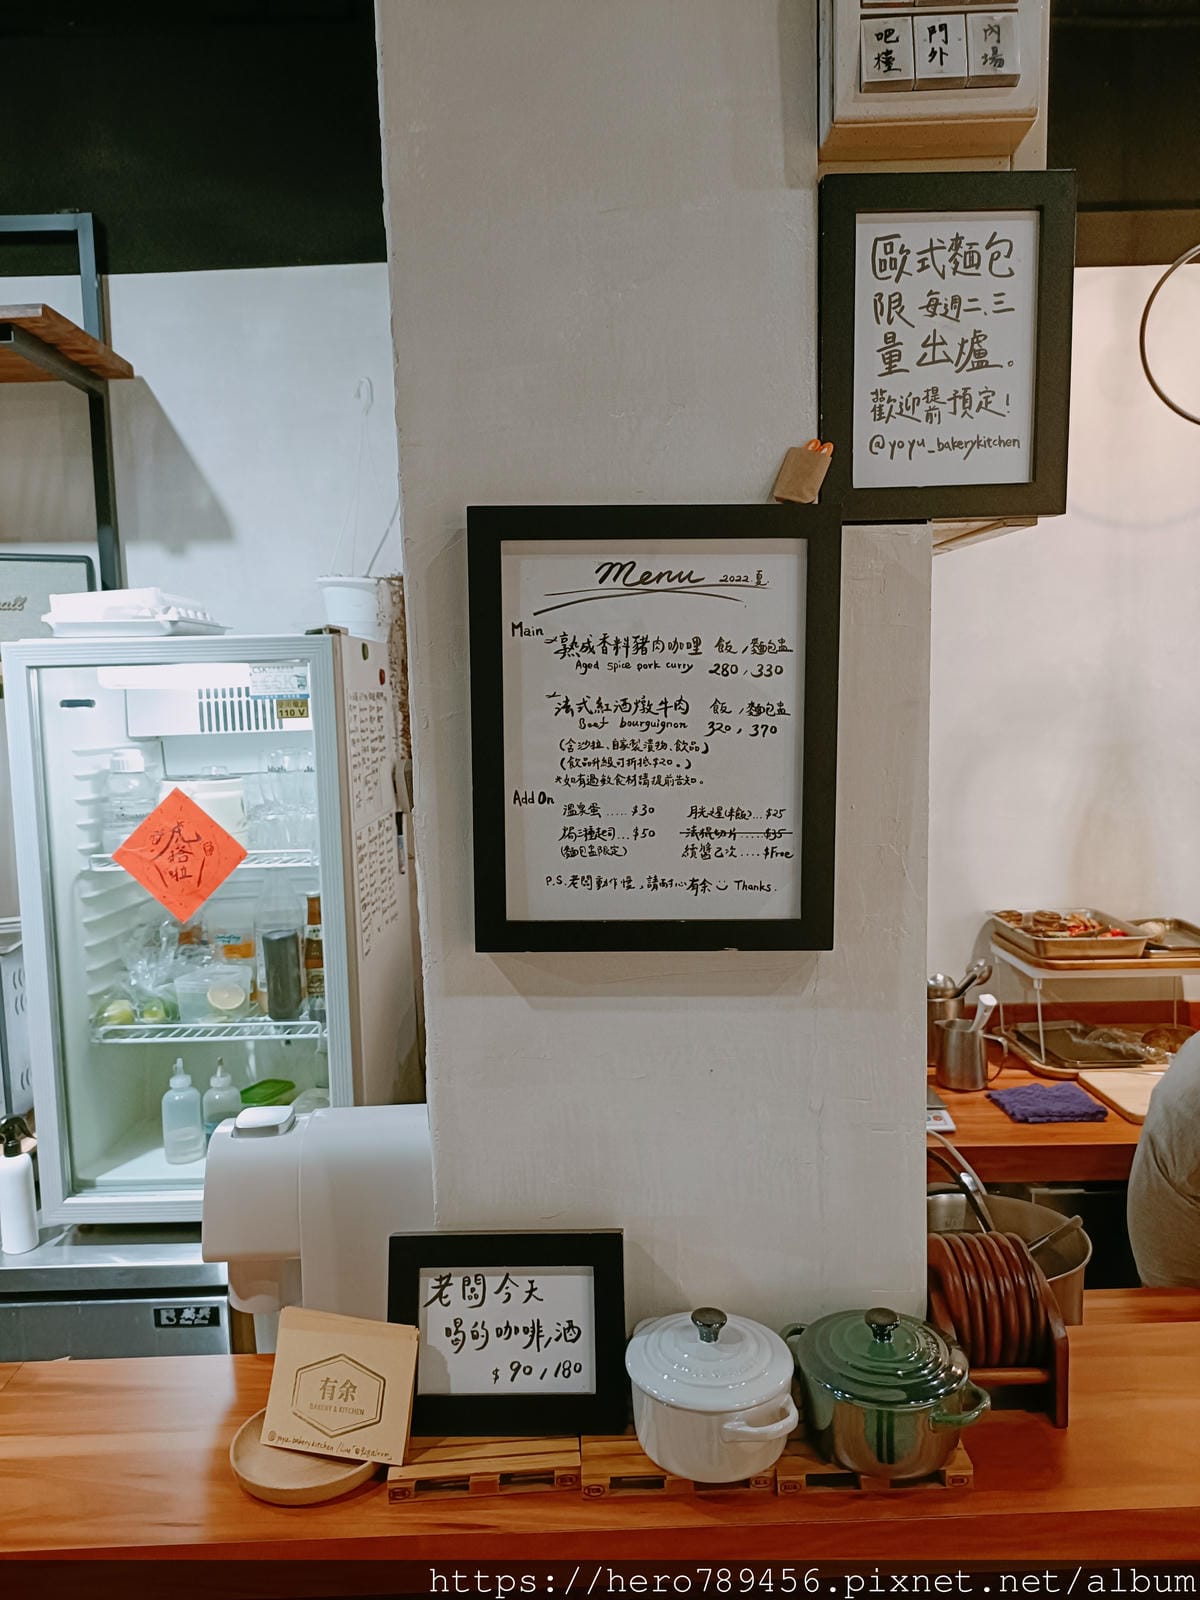 吧檯 門外 內場
歐式麵包
限量 每週二、三
出爐。
歡迎提前預定!
@yoyu_bakerykitchen
Menu 2022.夏.
Main
熟成香料豬肉咖哩 飯 / 麵包盅
Aged spice pork curry 280 / 330
法式紅酒燉牛肉 飯 / 麵包盅
Beef bourguignon 320 / 370
(含沙拉、自家製漬物、飲品)
(飲品升級可折抵$20。)
*如有過敏食材請提前告知。
Add On
溫泉蛋.....$30
焗三種起司...$50
(麵包盅限定)
月光之星(米飯)...$25
法棍切片.....$35
續醬乙次....$Free
P.S.老闆動作慢,請耐心有余 Thanks.
110V
虎
啦
老闆今天
喝的咖啡/酒
$90/180
有余
BAKERY & KITCHEN
@yoyu_bakerykitchen
https://hero789456.pixnet.net/album